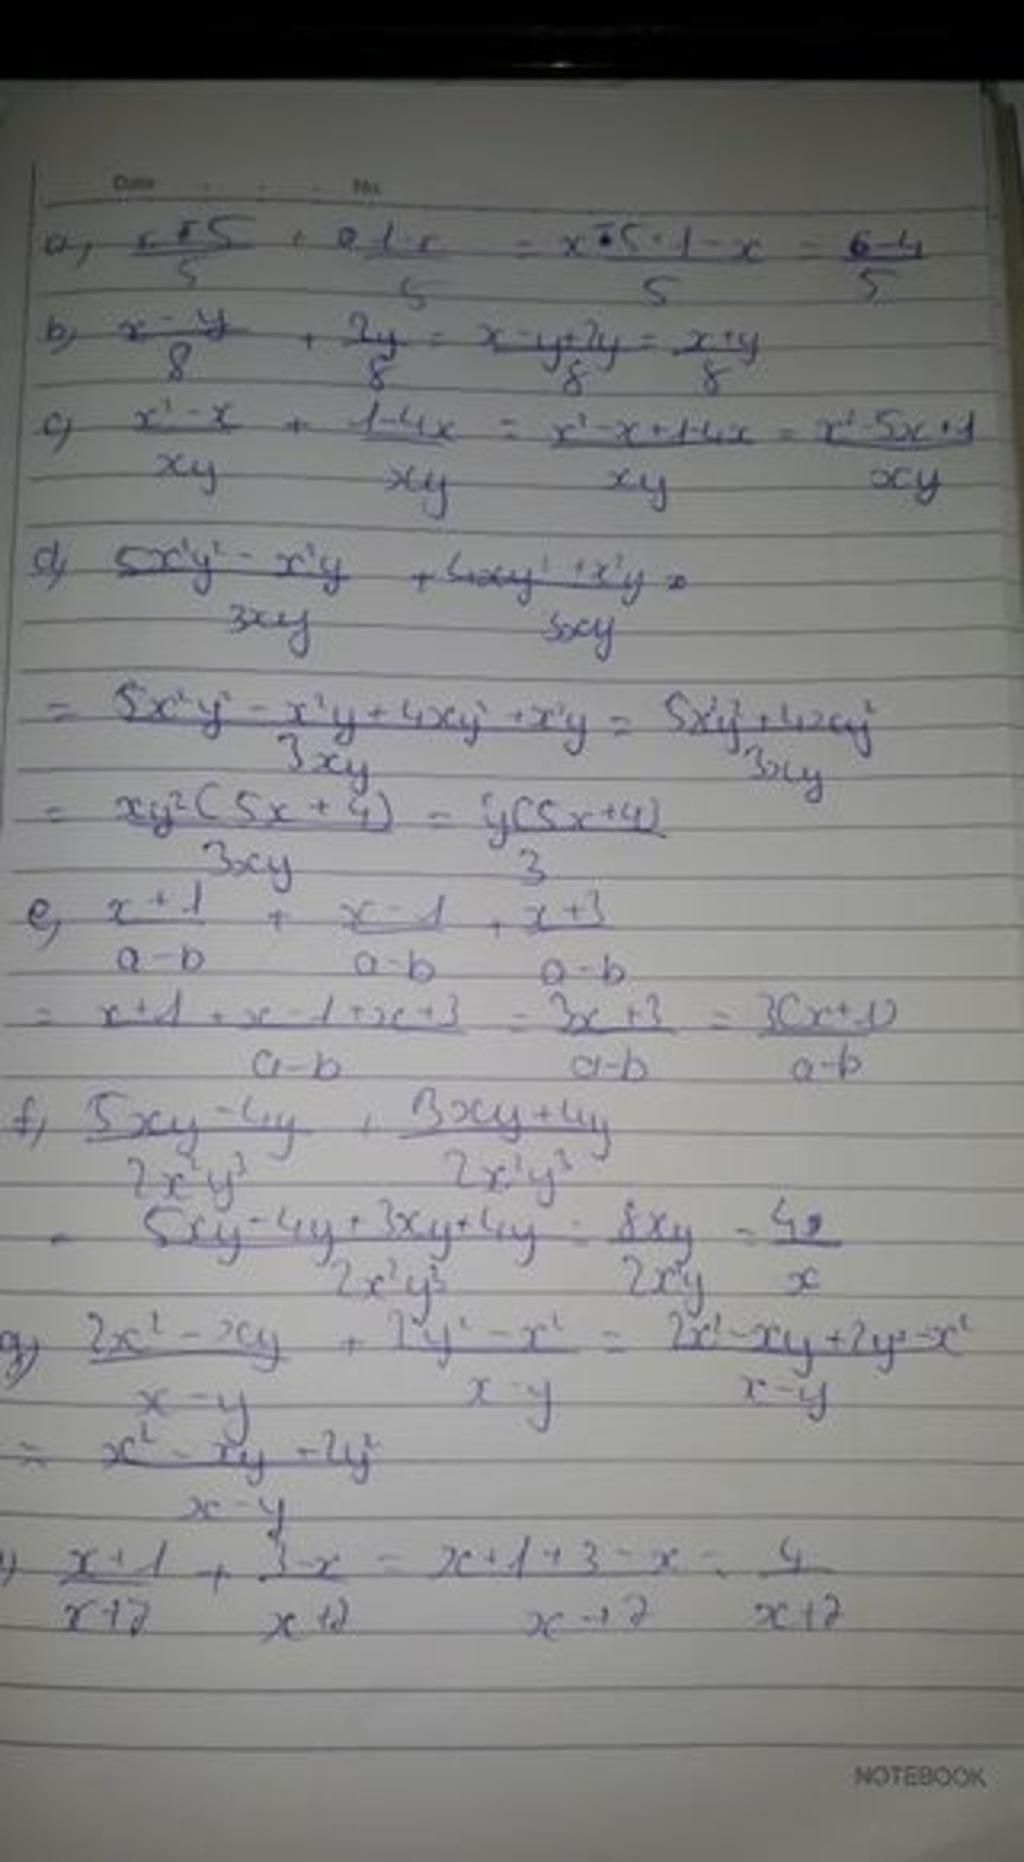 Date No.
a, x-5/5 + 1-x/5 = x-5+1-x/5 = -4/5
b, x-y/8 + 2y/8 = x-y+2y/8 = x+y/8
c, x²-x/xy + 1-4x/xy = x²-x+1-4x/xy = x²-5x+1/xy
d, 5x²y²-x²y/3xy + 4xy²+x²y/3xy =
= 5x²y²-x²y+4xy²+x²y/3xy = 5x²y²+4xy²/3xy
= xy²(5x+4)/3xy = y(5x+4)/3
e, x+1/a-b + x-1/a-b + x+3/a-b
= x+1+x-1+x+3/a-b = 3x+3/a-b = 3(x+1)/a-b
f, 5xy-4y/2x²y³ + 3xy+4y/2x²y³
= 5xy-4y+3xy+4y/2x²y³ = 8xy/2x²y = 4/x
g) 2x²-xy/x-y + 2y²-x²/x-y = 2x²-xy+2y²-x²/x-y
= x²-xy+2y²/x-y
x+1/x+2 + 3-x/x+2 = x+1+3-x/x+2 = 4/x+2
NOTEBOOK